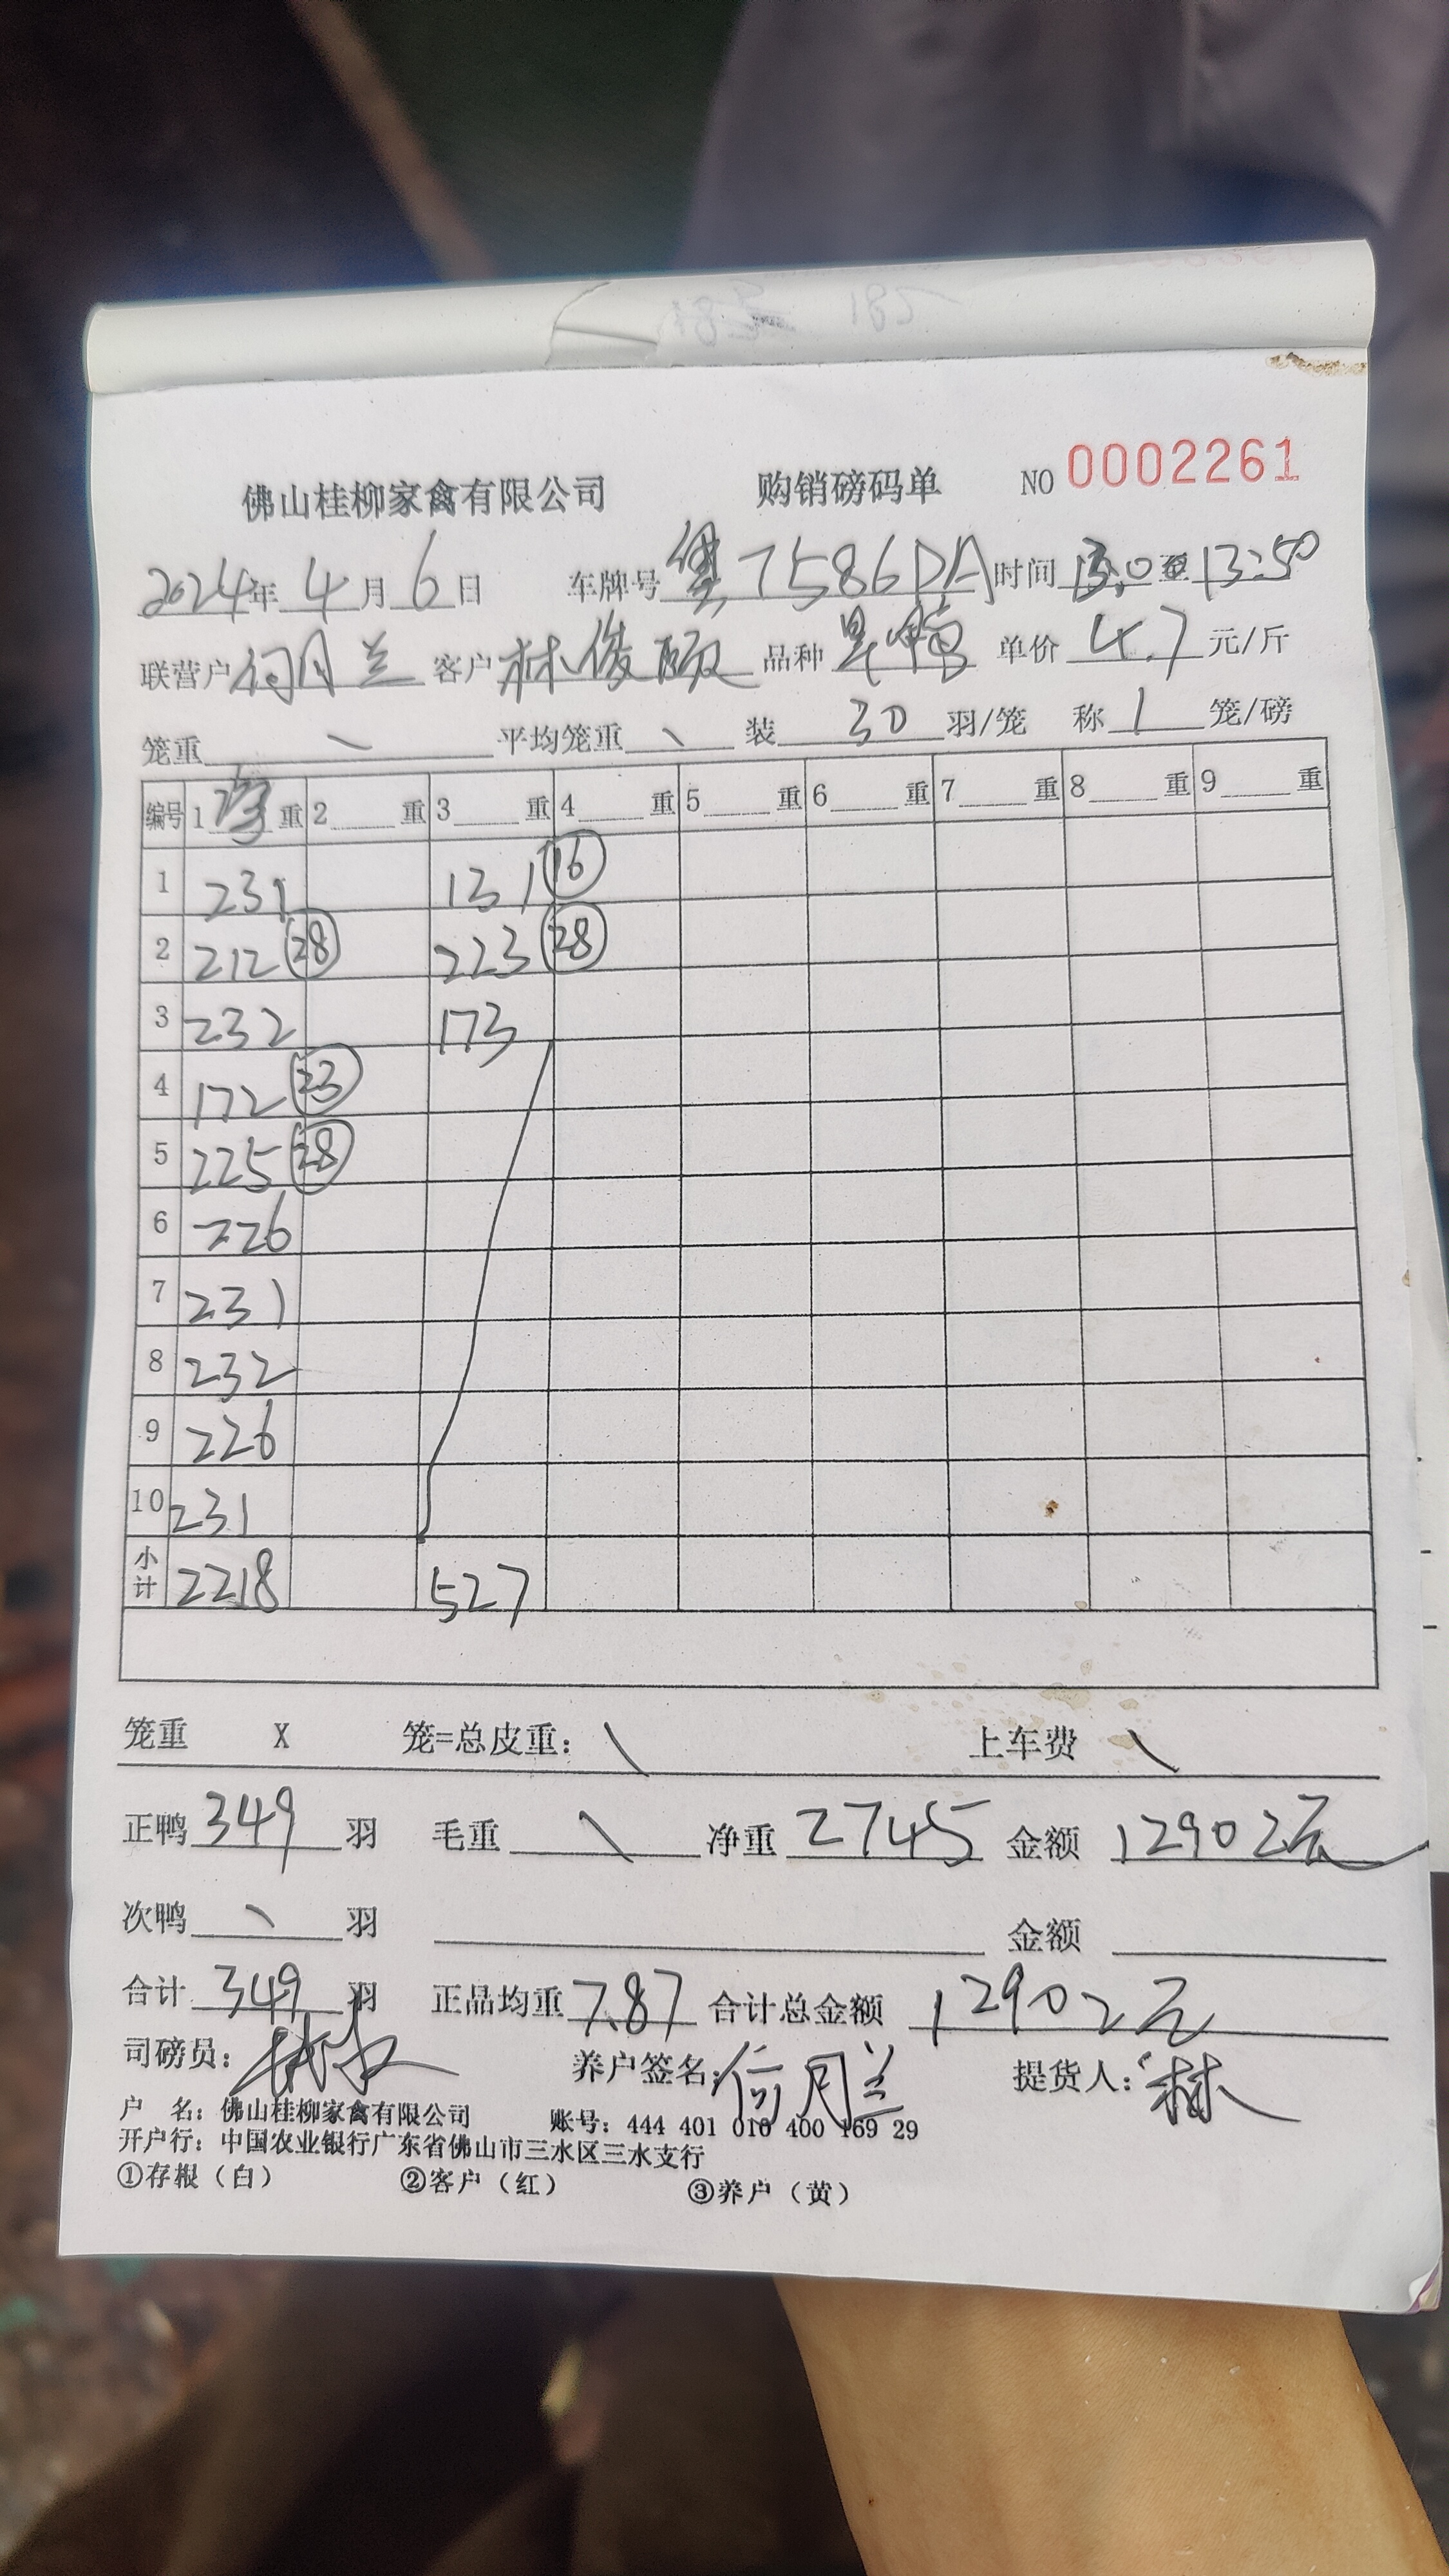 佛山桂柳家禽有限公司 购销磅码单 NO 0002261
2024年 4月 6日 车牌号 7586DA 时间 至 13:50
联营户 何月兰 客户 林俊颐 品种 单价 4.7 元/斤
笼重 \ 平均笼重 \ 装 30 羽/笼 称 1 笼/磅
编号 1 重 2 重 3 重 4 重 5 重 6 重 7 重 8 重 9 重
1 231 131 16
2 212 28 223 28
3 232 173
4 172 23
5 225 28
6 226
7 231
8 232
9 226
10 231
小计 2218 527
笼重 X 笼=总皮重： \ 上车费 \
正鸭 349 羽 毛重 \ 净重 2745 金额 12902元
次鸭 \ 羽 金额
合计 349 羽 正品均重 7.87 合计总金额 12902元
司磅员： 养户签名： 何月兰 提货人： 林
户 名：佛山桂柳家禽有限公司 账号：444 401 010 400 169 29
开户行：中国农业银行广东省佛山市三水区三水支行
①存根（白） ②客户（红） ③养户（黄）